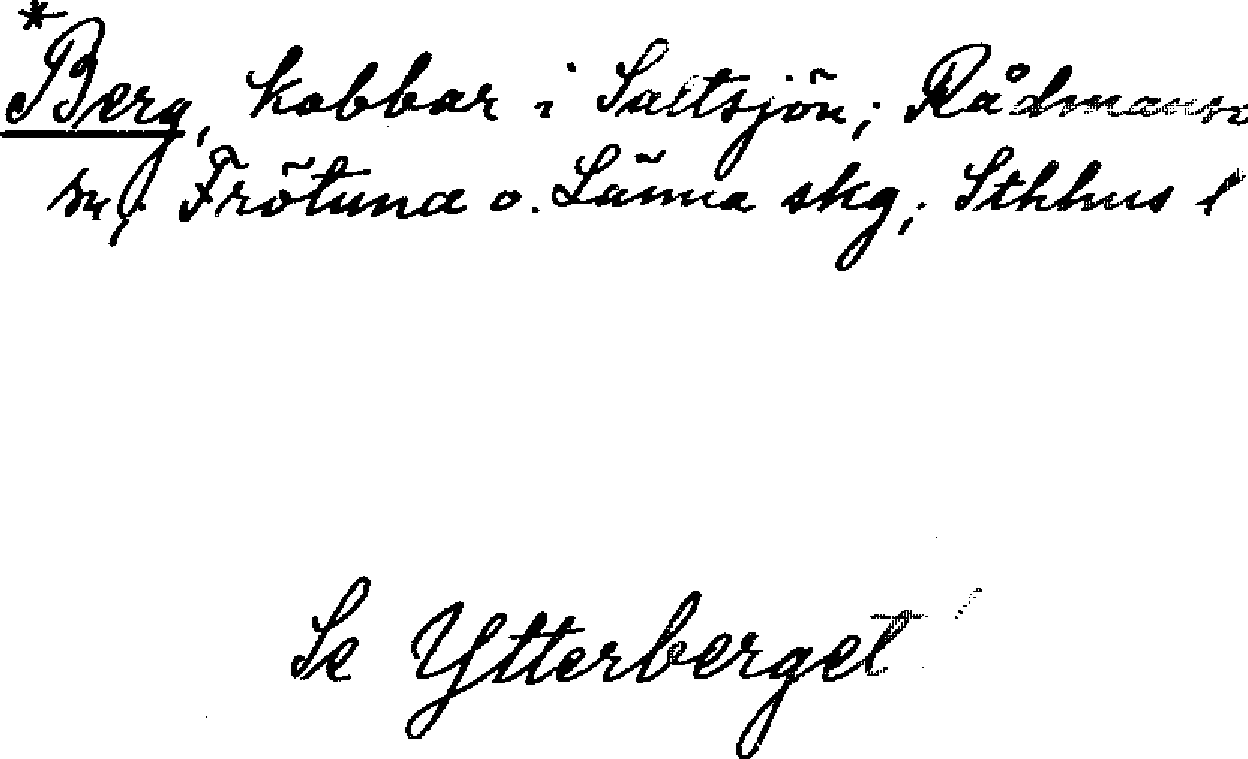 *Berg, kobbar i Saltsjön; Rådmansö
sn, Frötuna o. Länna skg; Sthhus l
Se Ytterberget